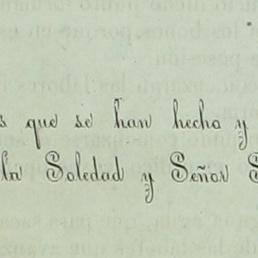 s que se han hecho y
la Soledad y Señor S